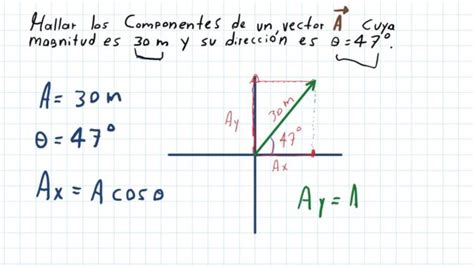 Hallar los Componentes de un vector A cuya
magnitud es 30 m y su dirección es θ = 47°.
A = 30 m
θ = 47°
Ax = A cos θ
Ay
30 m
47°
Ax
Ay = A